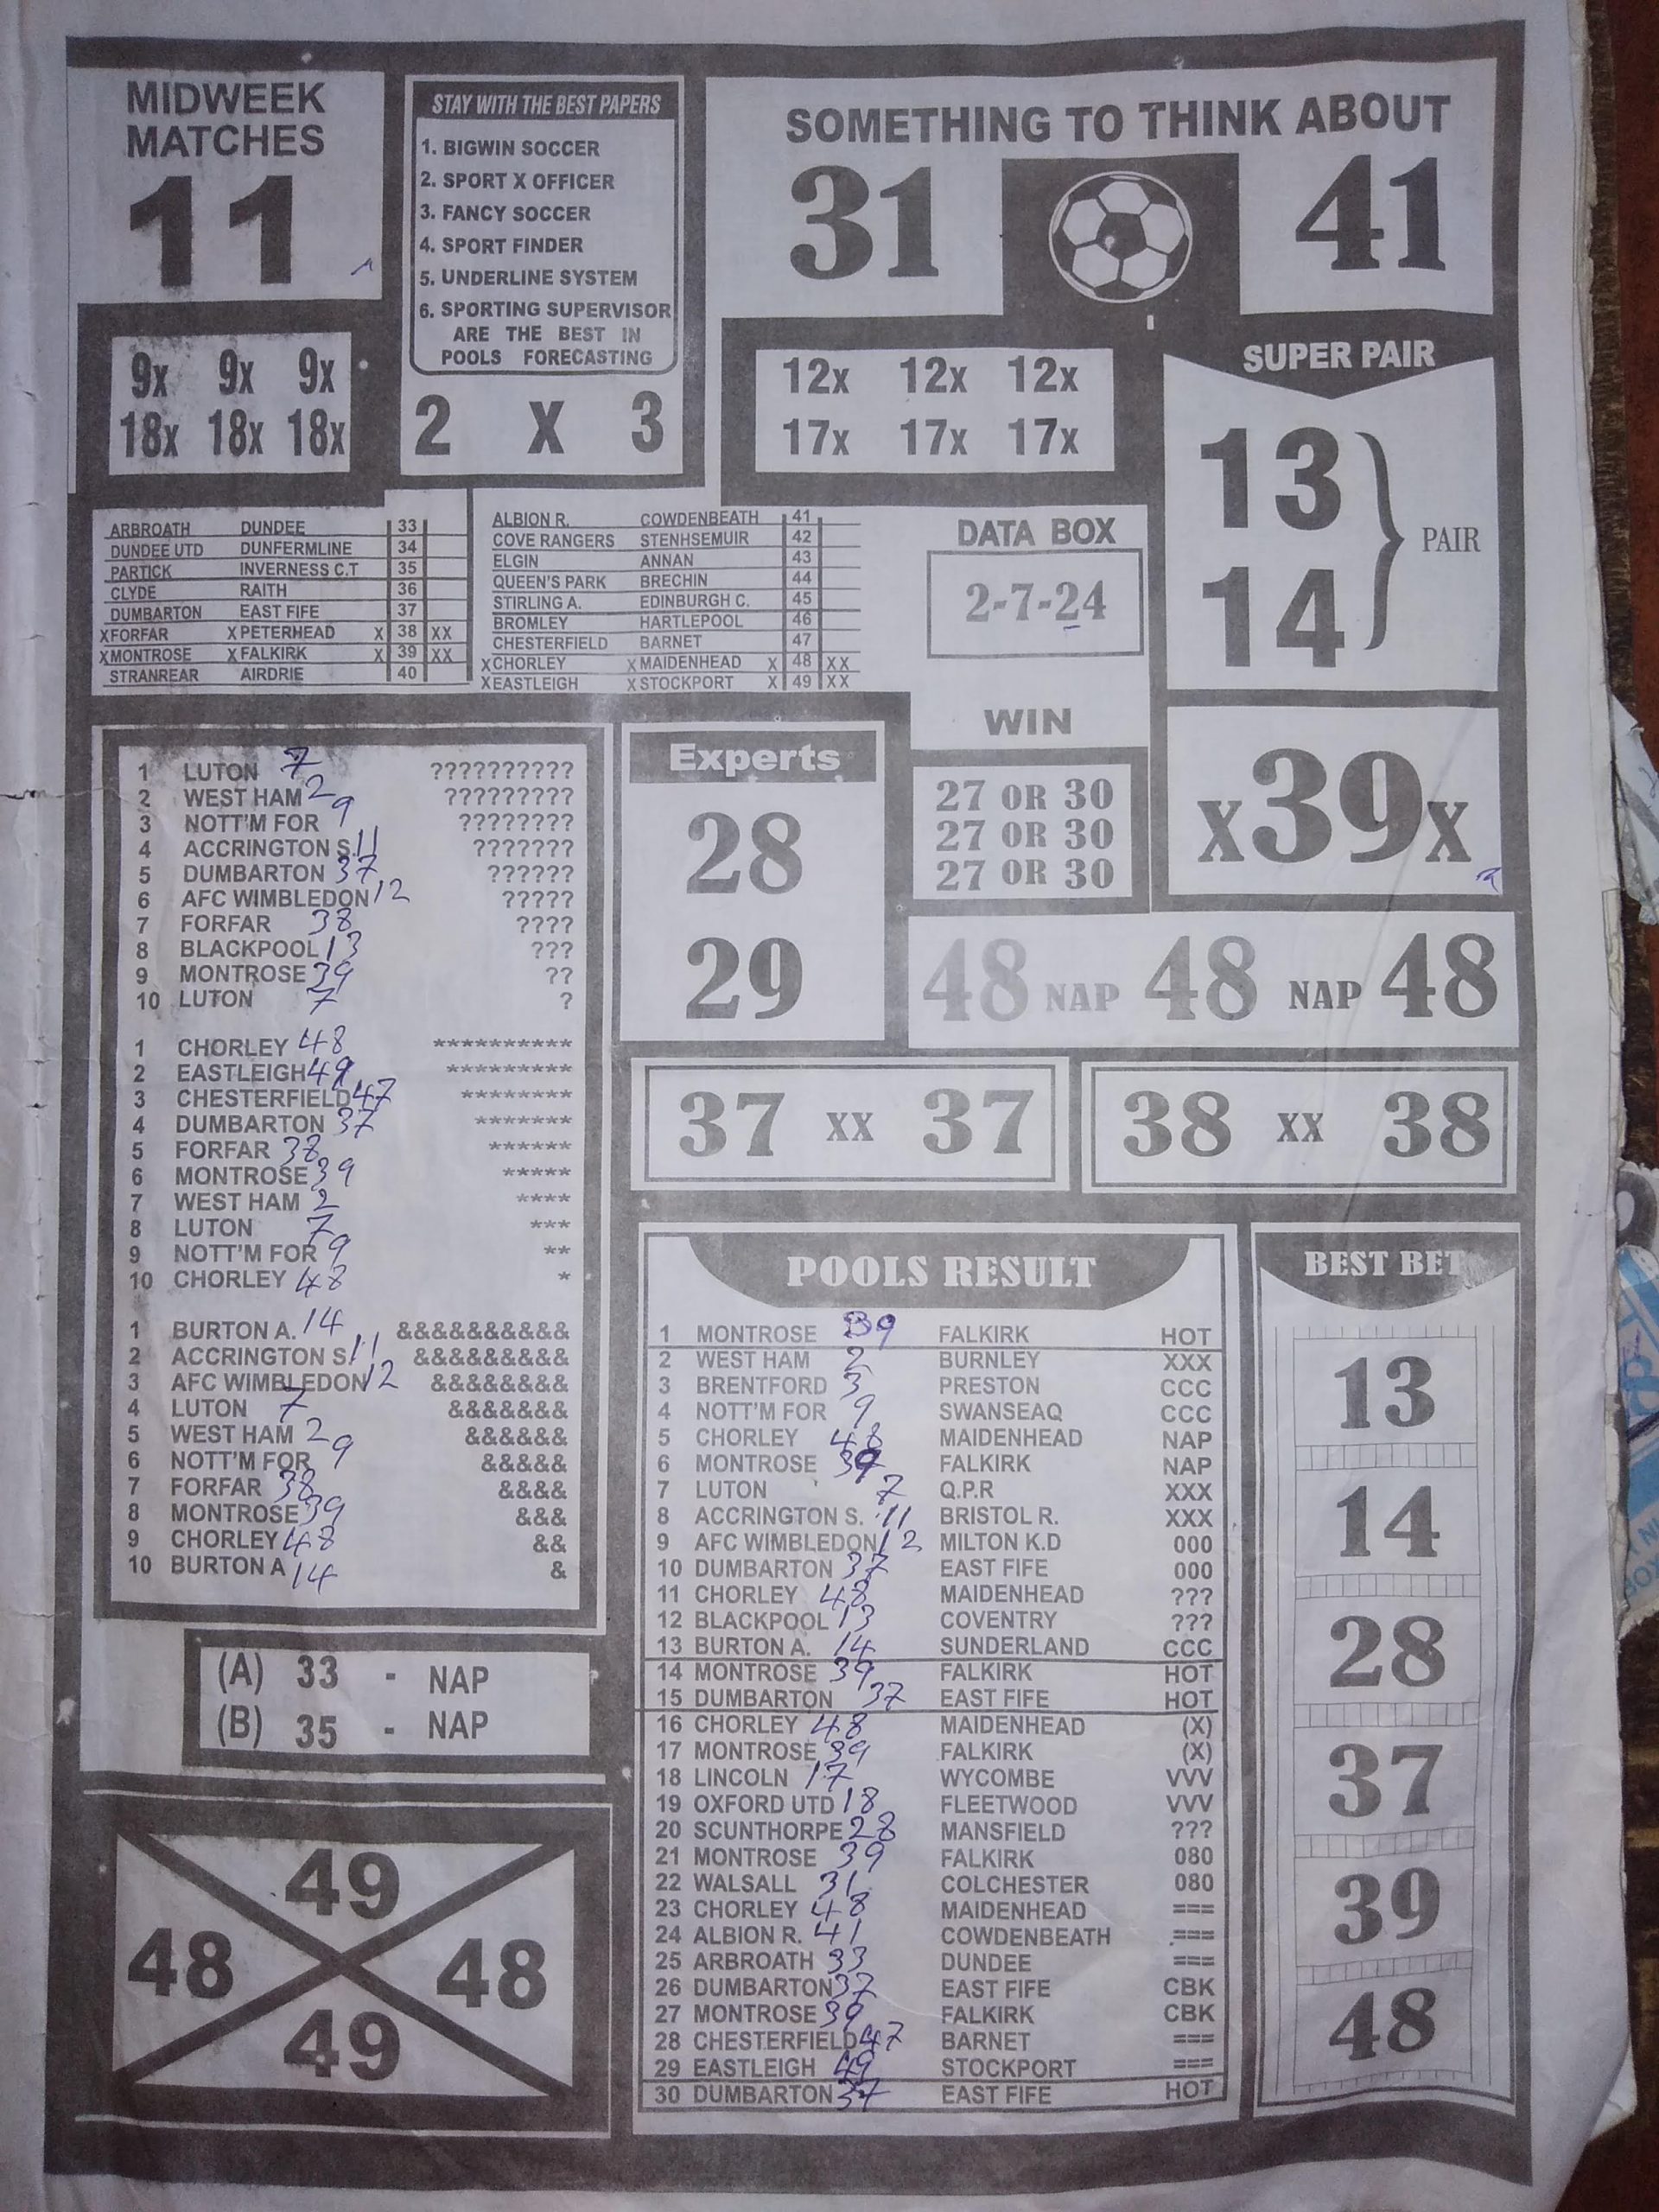 MIDWEEK
MATCHES
11
STAY WITH THE BEST PAPERS
1. BIGWIN SOCCER
2. SPORT X OFFICER
3. FANCY SOCCER
4. SPORT FINDER
5. UNDERLINE SYSTEM
6. SPORTING SUPERVISOR
ARE THE BEST IN
POOLS FORECASTING
2 X 3
SOMETHING TO THINK ABOUT
31 41
9x 9x 9x
18x 18x 18x
12x 12x 12x
17x 17x 17x
SUPER PAIR
13
14
PAIR
ARBROATH DUNDEE 33
DUNDEE UTD DUNFERMLINE 34
PARTICK INVERNESS C.T 35
CLYDE RAITH 36
DUMBARTON EAST FIFE 37
XFORFAR XPETERHEAD X 38 XX
XMONTROSE XFALKIRK X 39 XX
STRANREAR AIRDRIE 40
ALBION R. COWDENBEATH 41
COVE RANGERS STENHSEMUIR 42
ELGIN ANNAN 43
QUEEN'S PARK BRECHIN 44
STIRLING A. EDINBURGH C. 45
BROMLEY HARTLEPOOL 46
CHESTERFIELD BARNET 47
XCHORLEY XMAIDENHEAD X 48 XX
XEASTLEIGH XSTOCKPORT X 49 XX
DATA BOX
2-7-24
WIN
27 OR 30
27 OR 30
27 OR 30
X39X
Experts
28
29
48 NAP 48 NAP 48
37 XX 37
38 XX 38
1 LUTON 7 ??????????
2 WEST HAM 2 ?????????
3 NOTT'M FOR 9 ????????
4 ACCRINGTON S. 11 ???????
5 DUMBARTON 37 ??????
6 AFC WIMBLEDON 12 ?????
7 FORFAR 38 ????
8 BLACKPOOL 13 ???
9 MONTROSE 39 ??
10 LUTON 7 ?
1 CHORLEY 48 **********
2 EASTLEIGH 49 *********
3 CHESTERFIELD 47 ********
4 DUMBARTON 37 *******
5 FORFAR 38 ******
6 MONTROSE 39 *****
7 WEST HAM 2 ****
8 LUTON 7 ***
9 NOTT'M FOR 9 **
10 CHORLEY 48 *
1 BURTON A. 14 &&&&&&&&&&
2 ACCRINGTON S. 11 &&&&&&&&&
3 AFC WIMBLEDON 12 &&&&&&&&
4 LUTON 7 &&&&&&&
5 WEST HAM 2 &&&&&&
6 NOTT'M FOR 9 &&&&&
7 FORFAR 38 &&&&
8 MONTROSE 39 &&&
9 CHORLEY 48 &&
10 BURTON A 14 &
(A) 33 - NAP
(B) 35 - NAP
49
48 48
49
POOLS RESULT
1 MONTROSE 39 FALKIRK HOT
2 WEST HAM 2 BURNLEY XXX
3 BRENTFORD 3 PRESTON CCC
4 NOTT'M FOR 9 SWANSEAQ CCC
5 CHORLEY 48 MAIDENHEAD NAP
6 MONTROSE 39 FALKIRK NAP
7 LUTON 7 Q.P.R XXX
8 ACCRINGTON S. 11 BRISTOL R. XXX
9 AFC WIMBLEDON 12 MILTON K.D 000
10 DUMBARTON 37 EAST FIFE 000
11 CHORLEY 48 MAIDENHEAD ???
12 BLACKPOOL 13 COVENTRY ???
13 BURTON A. 14 SUNDERLAND CCC
14 MONTROSE 39 FALKIRK HOT
15 DUMBARTON 37 EAST FIFE HOT
16 CHORLEY 48 MAIDENHEAD (X)
17 MONTROSE 39 FALKIRK (X)
18 LINCOLN 17 WYCOMBE VVV
19 OXFORD UTD 18 FLEETWOOD VVV
20 SCUNTHORPE 28 MANSFIELD ???
21 MONTROSE 39 FALKIRK 080
22 WALSALL 31 COLCHESTER 080
23 CHORLEY 48 MAIDENHEAD ===
24 ALBION R. 41 COWDENBEATH ===
25 ARBROATH 33 DUNDEE ===
26 DUMBARTON 37 EAST FIFE CBK
27 MONTROSE 39 FALKIRK CBK
28 CHESTERFIELD 47 BARNET ===
29 EASTLEIGH 49 STOCKPORT ===
30 DUMBARTON 37 EAST FIFE HOT
BEST BET
13
14
28
37
39
48